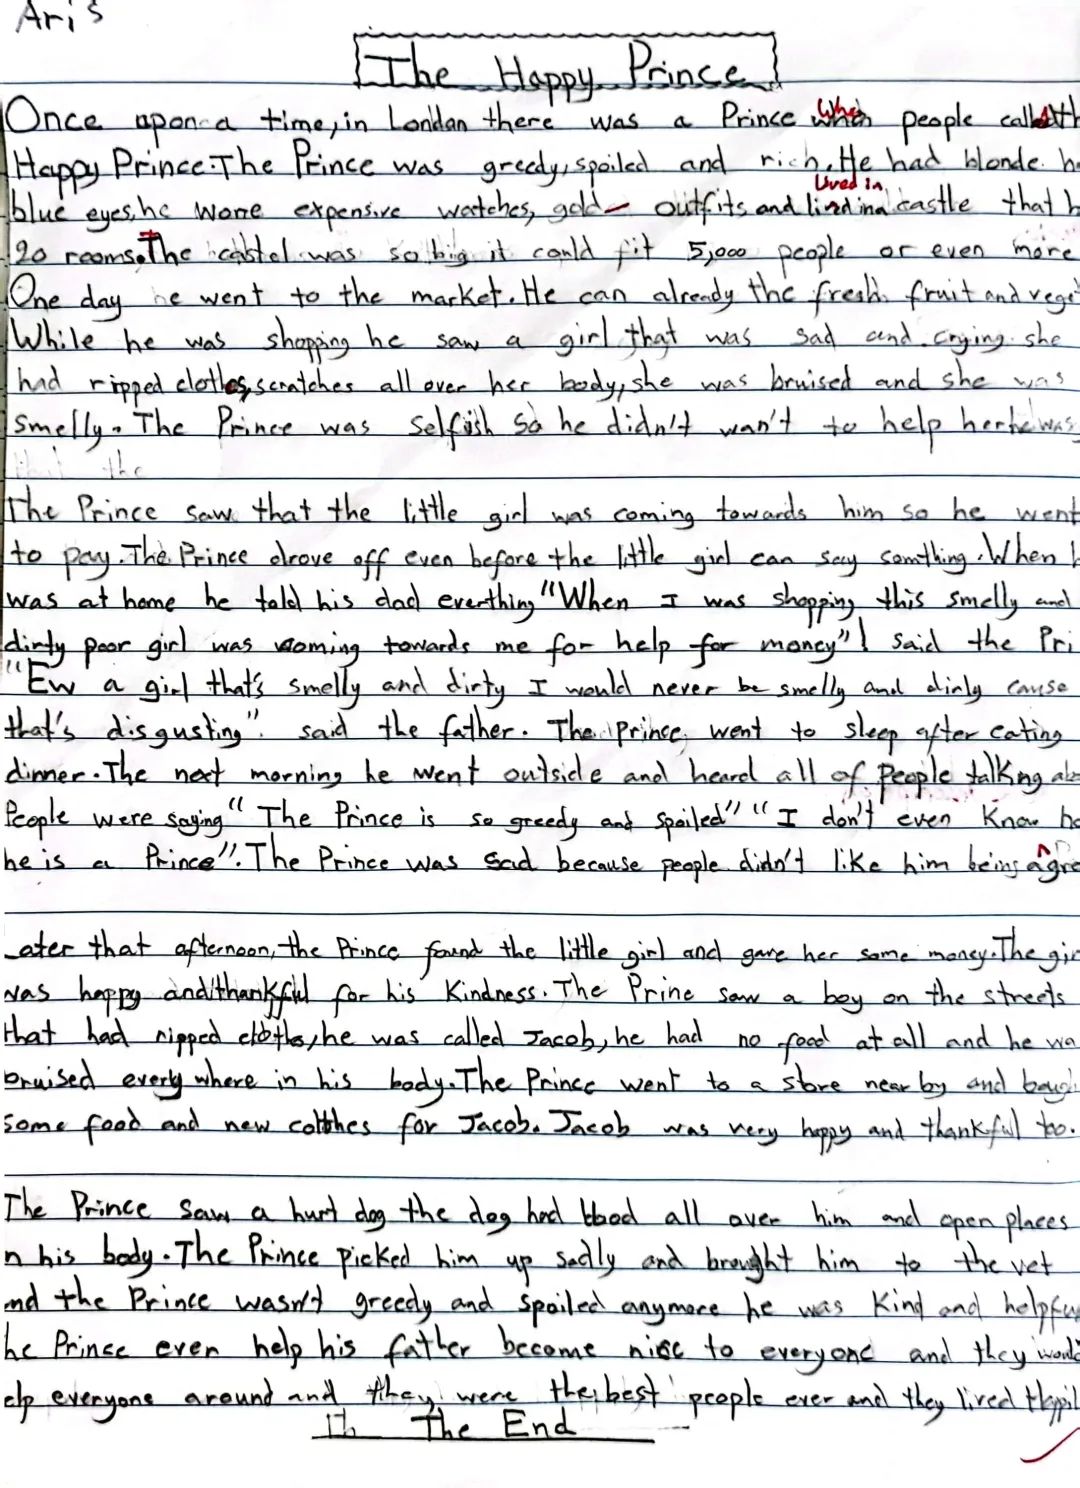 Aris
The Happy Prince
Once apon a time, in London there was a Prince when people called th
Happy Prince. The Prince was greedy, spoiled and rich. He had blonde h
Lived in
blue eyes, he wore expensive watches, gold outfits and castle that h
20 rooms. The castel was so big it could fit 5,000 people or even more
One day he went to the market. He can already the fresh fruit and vege
While he was shopping he saw a girl that was sad and crying she
had ripped clothes, scratches all over her body, she was bruised and she was
smelly. The Prince was selfish so he didn't wan't to help her he was
that the
The Prince saw that the little girl was coming towards him so he went
to pay. The Prince drove off even before the little girl can say somthing. When h
was at home he told his dad everthing "When I was shopping this smelly and
dirty poor girl was coming towards me for help for money"! said the Pri
"Ew a girl that's smelly and dirty I would never be smelly and dirly cause
that's disgusting". said the father. The Prince went to sleep after eating
dinner. The next morning he went outside and heard all of people talking abo
People were saying "The Prince is so greedy and spoiled" "I don't even know ho
he is a Prince". The Prince was sad because people didn't like him being a gre
ater that afternoon, the Prince found the little girl and gave her some money. The gir
was happy and thankful for his kindness. The Prine saw a boy on the streets
that had ripped he was called Jacob, he had no food at all and he wa
bruised everly where in his body. The Prince went to a store near by and bough
some food and new colthes for Jacob. Jacob was very happy and thankful too.
The Prince saw a hurt dog the dog had blood all over him and open places
n his body. The Prince picked him up sadly and brought him to the vet
nd the Prince wasn't greedy and spoiled anymore he was kind and helpfu
he Prince even help his father become nice to everyone and they would
elp everyone around and they were the best people ever and they lived Happil
The End